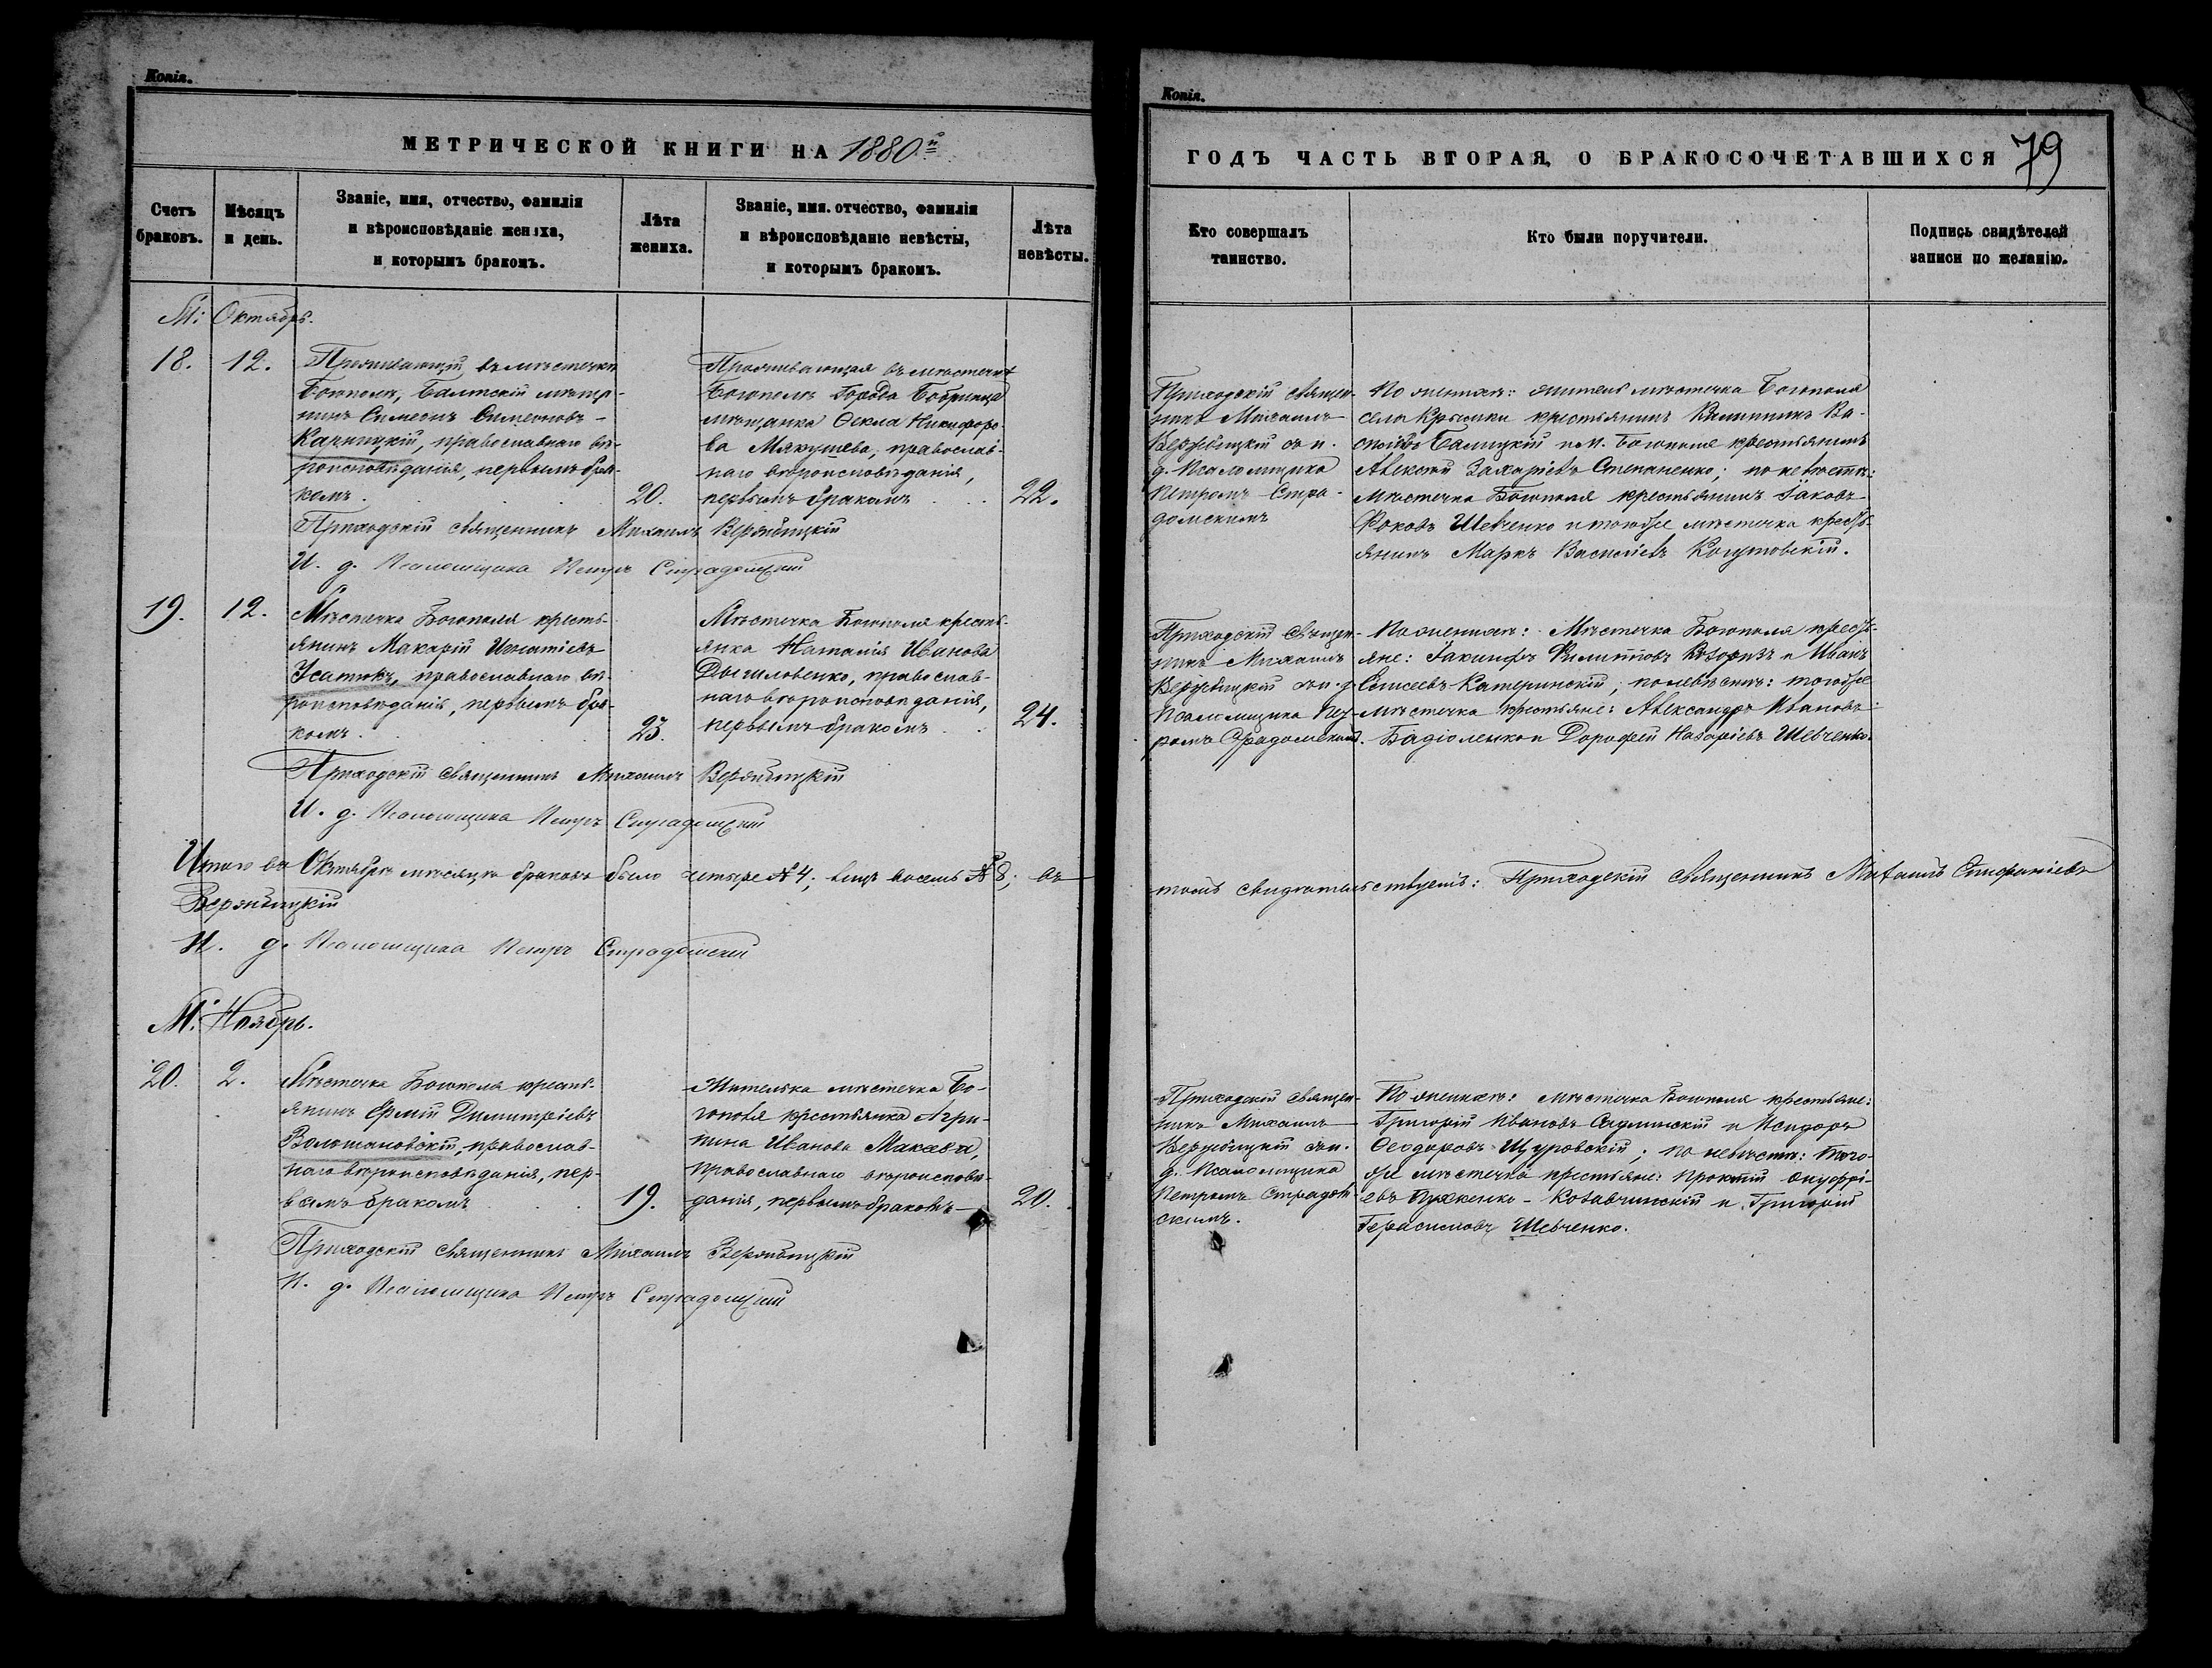 Копія.
МЕТРИЧЕСКОЙ КНИГИ НА 1880й
Счетъ браковъ.
Мѣсяцъ и день.
Званіе, имя, отчество, фамилія и вѣроисповѣданіе жениха, и которымъ бракомъ.
Лѣта жениха.
Званіе, имя. отчество, фамилія и вѣроисповѣданіе невѣсты, и которымъ бракомъ.
Лѣта невѣсты.
М: Октябрь.
18. 12.
Проживающій въ мѣстечкѣ
Богополѣ, Балтскій мѣща-
нинъ Симеонъ Симеоновъ
православнаго вѣ-
роисповѣданія, первымъ бра-
комъ. 20.
Проживающая въ мѣстечкѣ
Богополѣ города Бобринца
мѣщанка Ѳекла Никифоро-
ва Мякушева, православ-
наго вѣроисповѣданія,
первымъ бракомъ 22.
Приходскій священникъ Михаилъ Вержбицкій
И. д. Псаломщика Петръ Страдомскій
19. 12.
Мѣстечка Богополя кресть-
янинъ Макарій Игнатіевъ
Усатюкъ, православнаго вѣ-
роисповѣданія, первымъ бра-
комъ. 23.
Мѣстечка Богополя кресть-
янка Наталія Иванова
Дышловенко, православ-
наго вѣроисповѣданія,
первымъ бракомъ 24.
Приходскій священникъ Михаилъ Вержбицкій
И. д. Псаломщика Петръ Страдомскій
Итого въ Октябрѣ мѣсяцѣ браковъ было четыре № 4; лицъ восемь № 8; въ
Вержбицкій
И. д. Псаломщика Петръ Страдомскій
М: Ноябрь.
20. 2.
Мѣстечка Богополя кресть-
янинъ Ермій Димитріевъ
Волошановскій, православ-
наго вѣроисповѣданія, пер-
вымъ бракомъ 19.
Жителька мѣстечка Бо-
гополя крестьянка Агри-
пина Иванова Макаева,
православнаго вѣроисповѣ-
данія, первымъ бракомъ 20.
Приходскій священникъ Михаилъ Вержбицкій
И. д. Псаломщика Петръ Страдомскій
Копія.
ГОДЪ ЧАСТЬ ВТОРАЯ, О БРАКОСОЧЕТАВШИХСЯ
79
Кто совершалъ таинство.
Кто были поручители.
Подпись свидѣтелей записи по желанію.
Приходскій священ-
никъ Михаилъ
Вержбицкій съ и.
д. Псаломщика
Петромъ Страдомскимъ
По женихѣ: житель мѣстечка Богополя
села Крысики крестьянинъ Ва-
Балицкій и м. Богополя крестьянинъ
Алексѣй Захаріевъ Степаненко; по невѣстѣ:
Мѣстечка Богополя крестьянинъ Іаковъ
Фоковъ Шевченко и тогоже мѣстечка кресть-
янинъ Маркъ Василіевъ Когутовскій.
Приходскій священ-
никъ Михаилъ
Вержбицкій съ и. д.
Псаломщика Пет-
ромъ Страдомскимъ.
По женихѣ: Мѣстечка Богополя кресть-
яне: Іакинфъ Филипповъ и Иванъ
Елисеевъ Катеринскій; по невѣстѣ: тогоже
мѣстечка крестьяне: Александръ Ивановъ
и Дорофей Назаріевъ Шевченко.
томъ свидѣтельствуетъ: Приходскій священникъ Михаилъ Епифаніевъ
Приходскій священ-
никъ Михаилъ
Вержбицкій съ и.
д. Псаломщика
Петромъ Страдом-
скимъ.
По женихѣ: мѣстечка Богополя крестьяне:
Григорій Ивановъ и Исидоръ
Ѳеодоровъ Щуровскій; по невѣстѣ: того-
же мѣстечка крестьяне: Прокопій Онуфрі-
евъ Козавчинскій и Григорій
Герасимовъ Шевченко.